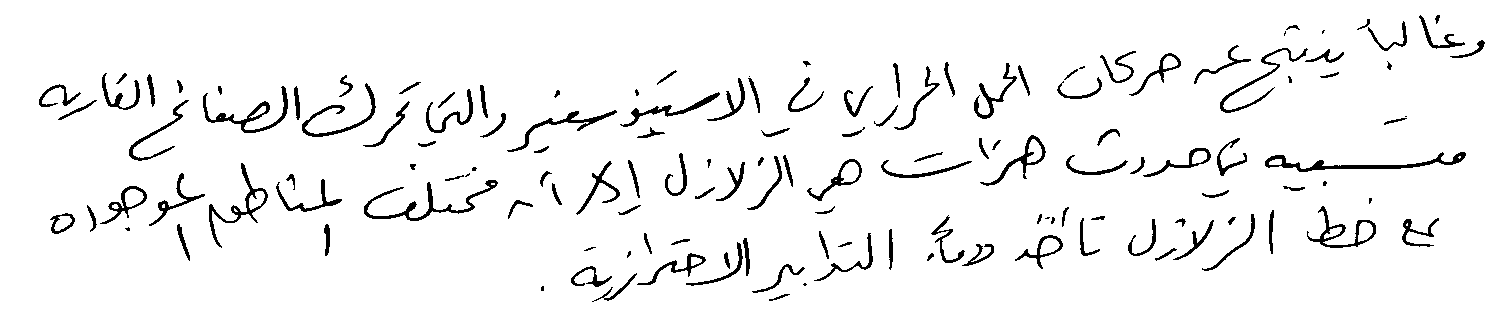 وغالباً ينتج عن حركات الحمل الحراري في الاستينوسفير والتي تحرك الصفائح القاريه
متسببه في حدوث هزات هي الزلازل إلا أن مختلف المناطق الموجوده
مع خط الزلازل تأخذ دوماً التدابير الاحترازية .